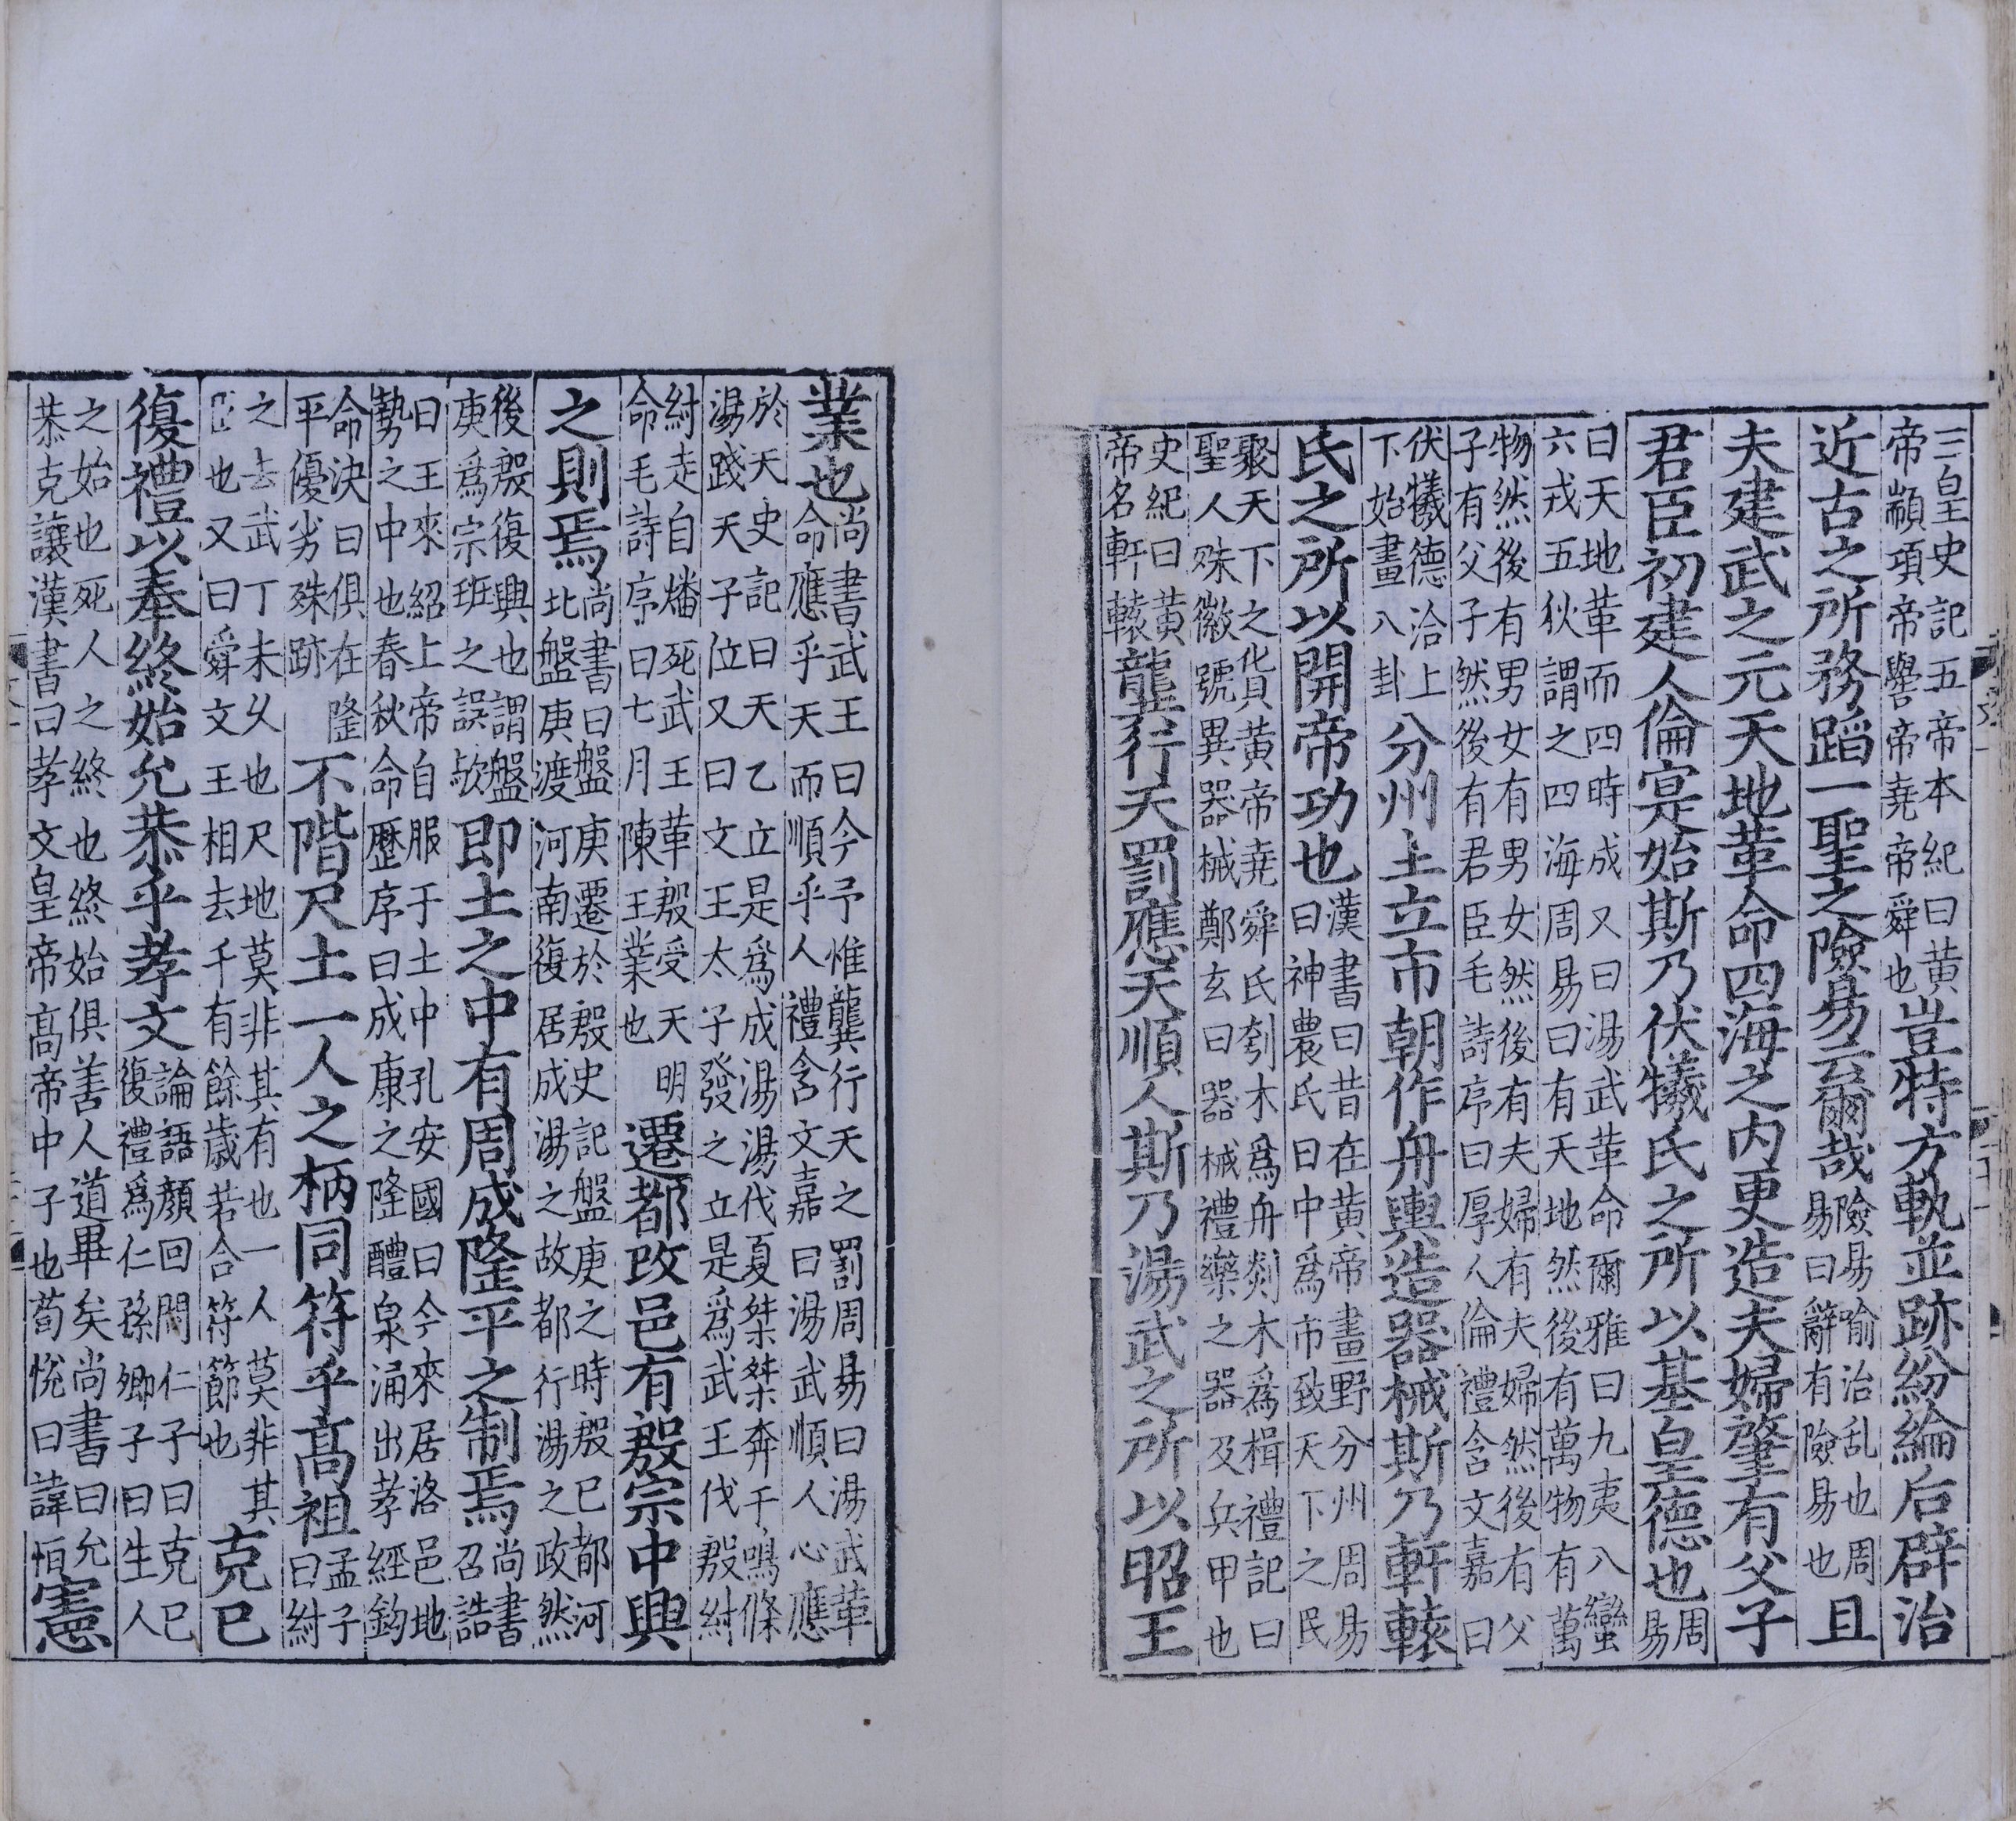 三皇史記五帝本紀曰黃帝顓頊帝嚳帝堯帝舜也豈特方軌並跡紛綸后辟治
近古之所務蹈一聖之險易云爾哉險易喻治乱也周易曰辭有險易也且
夫建武之元天地革命四海之内更造夫婦肇有父子
君臣初建人倫寔始斯乃伏犧氏之所以基皇德也周易
曰天地革而四時成又曰湯武革命爾雅曰九夷八蠻
六戎五狄謂之四海周易曰有天地然後有萬物有萬
物然後有男女有男女然後有夫婦有夫婦然後有父
子有父子然後有君臣毛詩序曰厚人倫禮含文嘉曰
伏犧德洽上下始畫八卦分州土立市朝作舟輿造器械斯乃軒轅
氏之所以開帝功也漢書曰昔在黃帝畫野分州周易曰神農氏曰中爲市致天下之民
聚天下之貨黃帝堯舜氏刳木爲舟剡木爲楫禮記曰
聖人殊徽號異器械鄭玄曰器械禮樂之器及兵甲也
史紀曰黃帝名軒轅龔行天罰應天順人斯乃湯武之所以昭王
業也尚書武王曰今予惟龔行天之罰周易曰湯武革命應乎天而順乎人禮含文嘉曰湯武順人心應
於天史記曰天乙立是爲成湯湯伐夏桀桀奔于鳴條
湯踐天子位又曰文王太子發之立是爲武王伐殷紂
紂走自燔死武王革殷受天明命毛詩序曰七月陳王業也遷都改邑有殷宗中興
之則焉尚書曰盤庚遷於殷史記盤庚之時殷已都河北盤庚渡河南復居成湯之故都行湯之政然
後殷復興也謂盤庚爲宗班之誤歟即土之中有周成隆平之制焉尚書召誥
曰王來紹上帝自服于土中孔安國曰今來居洛邑地
勢之中也春秋命歷序曰成康之隆醴泉涌出孝經鈎
命決曰俱在隆平優劣殊跡不階尺土一人之柄同符乎高祖孟子曰紂
之去武丁未久也尺地莫非其有也一人莫非其臣也又曰舜文王相去千有餘歲若合符節也克己
復禮以奉終始允恭乎孝文論語顏回問仁子曰克己復禮爲仁孫卿子曰生人
之始也死人之終也終始俱善人道畢矣尚書曰允恭克讓漢書曰孝文皇帝高帝中子也荀悅曰諱恒憲